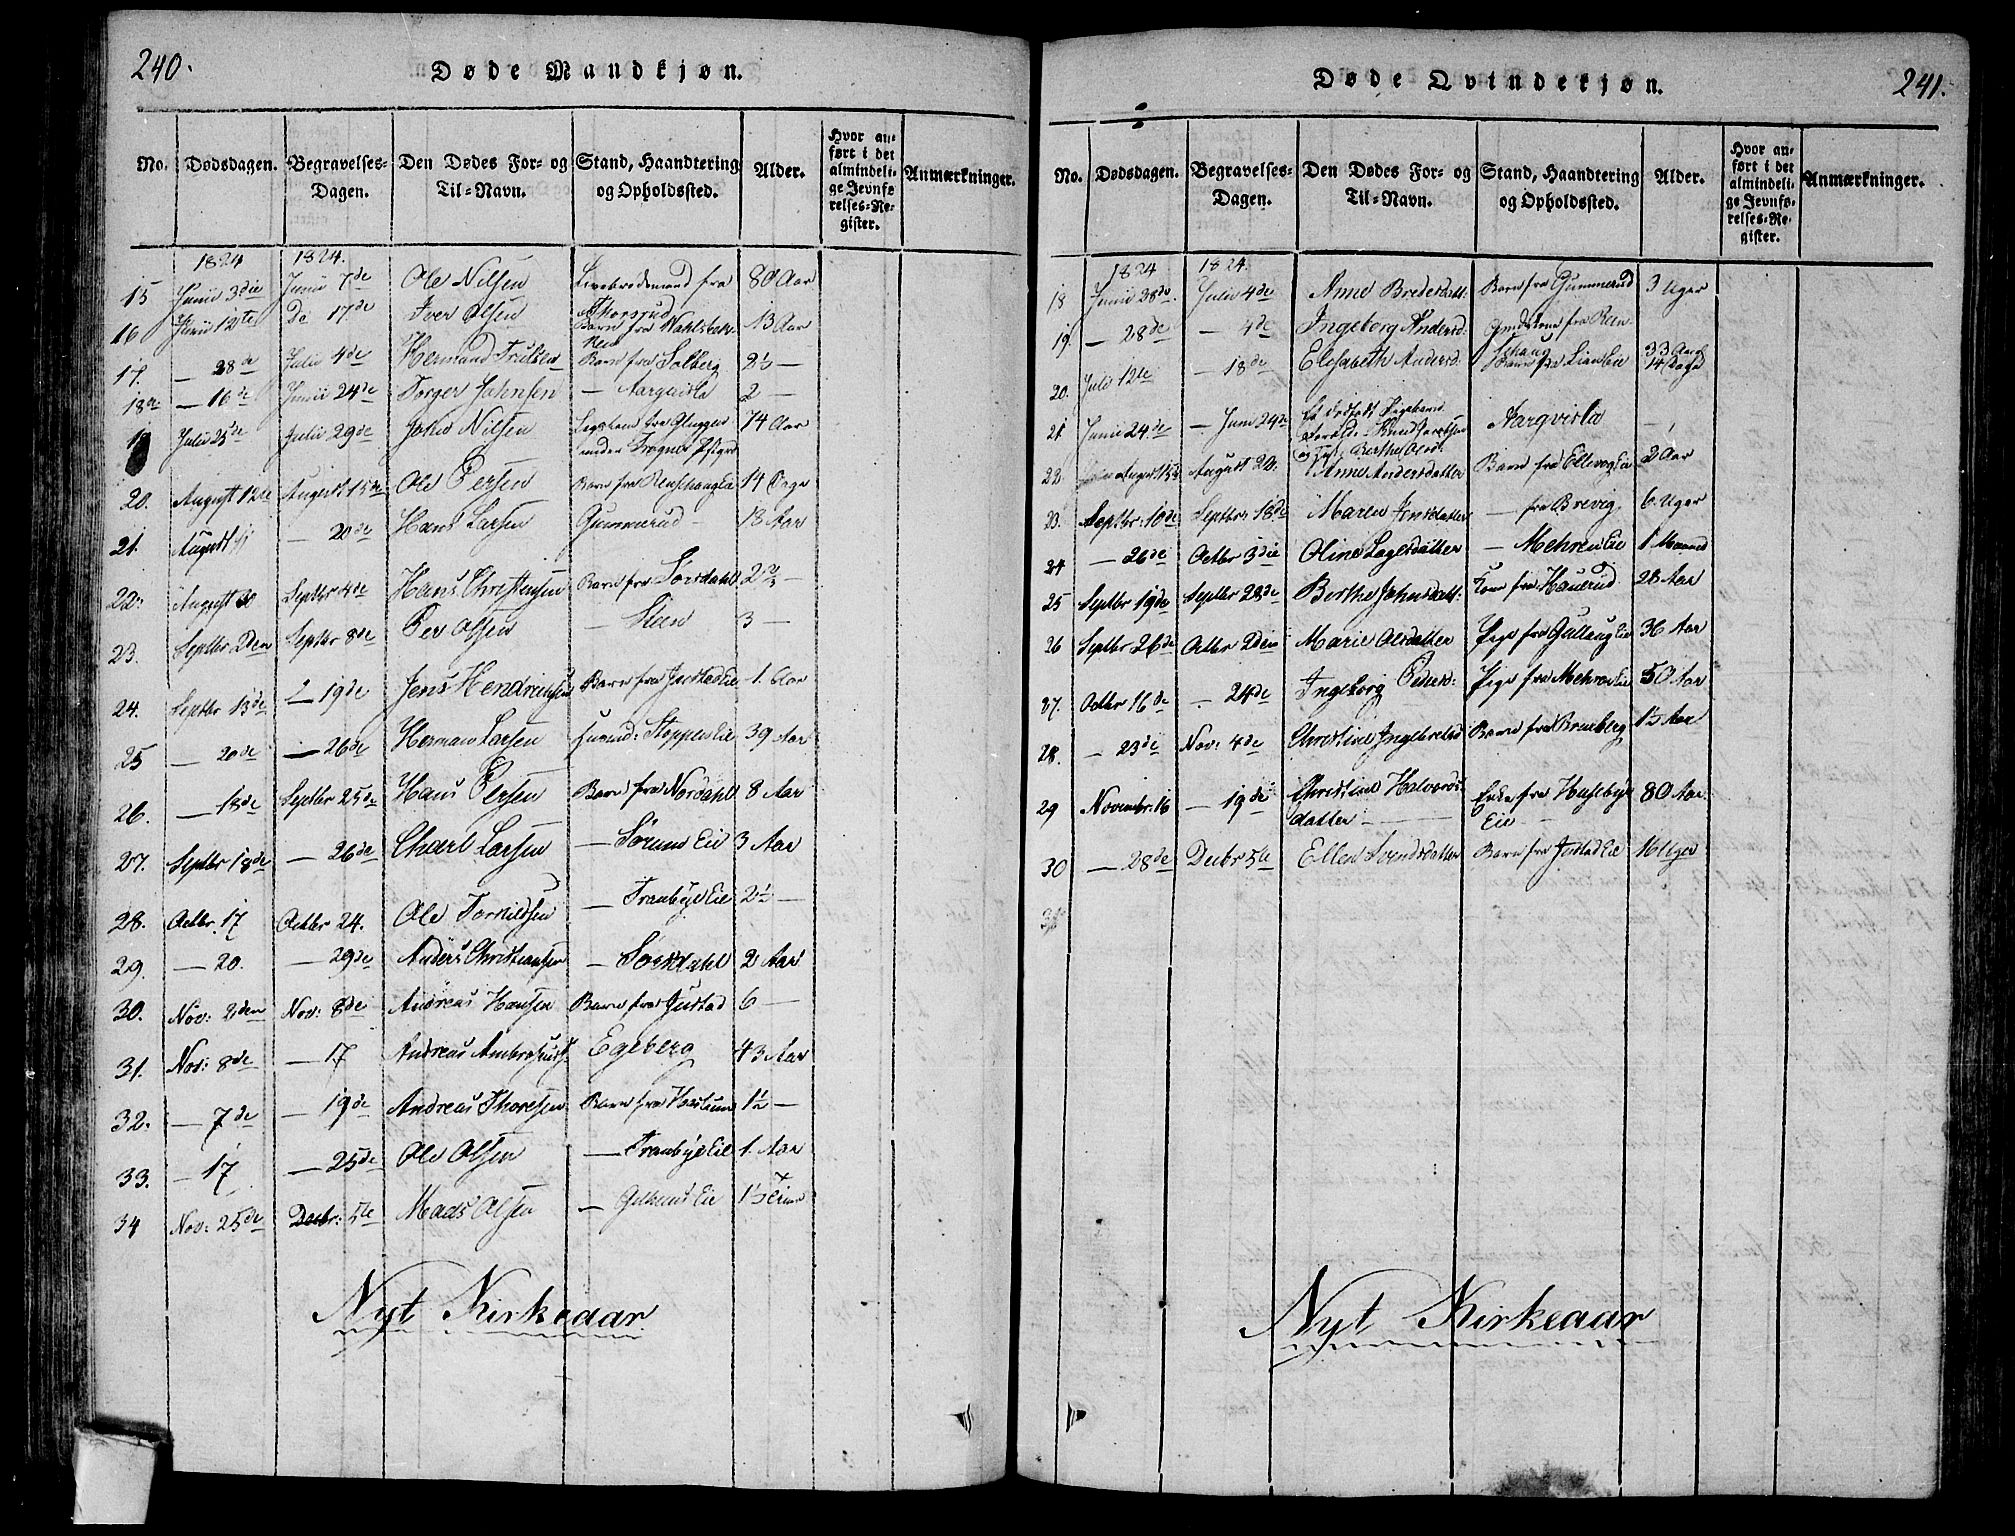 240.
Døde Mandkjøn.
No. Dødsdagen. Begravelses-Dagen. Den Dødes For- og Til-Navn. Stand, Haandtering og Opholdssted. Alder. Hvor anført i det almindelige Jevnførelses-Register. Anmærkninger.
1824 1824.
15 Junii 3die Junii 7de Ole Nilsen fra 80 Aar
Thorsrud
16 Junii 12te Do 17de Iver Olsen Barn fra 13 Aar
17. — 28de Julii 4de Hermand Barn fra Solberg 2½ —
18de — 16de Junii 24de Torger Jahnsen — Aarqvisla 2 —
19 Julii 25de Julii 29de John Nilsen fra 74 Aar
under
20. August 12te August 15de Ole Persen Barn fra 14 Dage
21. August — 20de Hans Larsen Gunnerud — 13 Aar
22. August 30 Septbr 4de Hans Christensen Barn fra Sørsdahl 2
23. Septbr 2den Septbr 8de Per Olsen — Steen 3 —
24. Septbr 13de — 19de Jens Hendricksen Barn fra Justad Eie 1. Aar
25 — 20de — 26de Herman Larsen Huusmd: Stoppen Eie 39 Aar
26. — 18de Septbr 25de Hans Persen Barn fra Nordahl 8 Aar
27. Septbr 18de — 26de Charl Larsen — Sørum Eie 3 Aar
28. Octbr. 17 Octbr 24. Ole — Tranbye Eie 2½ —
29. — 20. — 29de Anders Christiansen — Sørsdahl 2 Aar
30. Nov: 2den Nov: 8de Andreas Hansen Barn fra Justad 6 —
31. Nov: 8de — 17 Andreas Egeberg 43 Aar
32. — 7de — 19de Andreas Thoresen Barn fra 1½ —
33. — 17 — 25de Ole Olsen — Tranbye Eie 1. Aar
34 Nov: 25de Decbr: 5te Mads Olsen — Eie 1½
Nyt Kirkeaar
241.
Døde Qvindekjøn.
No. Dødsdagen. Begravelses-Dagen. Den Dødes For- og Til-Navn. Stand, Haandtering og Opholdssted. Alder. Hvor anført i det almindelige Jevnførelses-Register. Anmærkninger.
1824 1824.
18 Junii 28de Julii 4de Anne Bredesdatt: Barn fra Gunnerud 3 Uger
19. — 28de — 4de Ingeborg Andersd. fra 33 Aar
20. Julii 12te — 18de Elisabeth Andersd. Barn fra Lian Eie 14 Dage
21 Junii 24de — Junii 24de Et dødfødt Pigebarn Aarqvisla —
Knud Jacobsen
og Berthe Olsd.
22. August August 20. Anne Andersdatter Barn fra Eie 2 Aar
23. Septbr: 10de Septbr: 18de Maren Jensdatter — fra Brevig 6. Uger
24 — 26de Octbr 3die Oline Lagesdatter — Mehren Eie 1 Maaned
25 Septbr 19de Septbr 28de Berthe Jahnsdatt: Kone fra Hauerud 28 Aar
26 Septbr 26de Octbr 2den Marie Olsdatter Pige fra Gullaug Eie 36 Aar
27. Octbr 16de — 24de Ingeborg Pige fra Mehren Eie 50 Aar
28. — 23de Nov: 4de Christine Ingebretsd Barn fra 1½ Aar
29 Novembr. 16 — 19de Christine Halvords- Enke fra Husebye 80 Aar
datter — Eie —
30 — 28de Decbr 5te Ellen Svendsdatter Barn fra Justad Eie 16 Uger
31
Nyt Kirkeaar